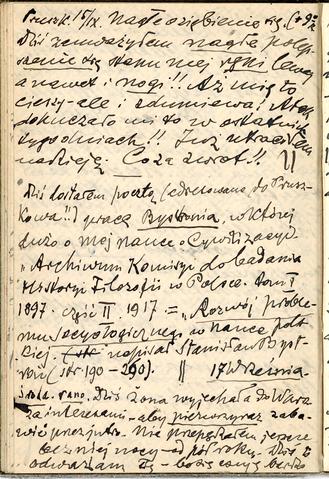 Pruszk. 15/IX. Nagłe oziębienie się. (+9°
Dziś zauważyłem nagłe polep-
szenie się stanu mej ręki lewej
a nawet i nogi!! Aż mię to
cieszy - ale i zdumiewa! A tak
dokuczało mi to w ostatnich
tygodniach!! Już utraciłem
nadzieję. Co za zwrot!! //
Dziś dostałem pocztą (adresowane do Prusz-
kowa!!) pracę Bystronia, w której
dużo o mej nauce o Cywilizacyi.
"Archiwum Komisyi do badania
Historyi Filozofii w Polsce. Tom I
1897. część II. 1917. = "Rozwój proble-
mu socyologicznego w nauce pols-
kiej. napisał Stanisław Byst-
roń (str 190 - 290). // 17 Września
środa. rano. Dziś żona wyjechała do Warsz
za interesami - aby pierwszy raz zaba-
wić przez jutro. Nie przepędzałem jeszcze
bez niej nocy - od pół roku. Dziś
odważam się -